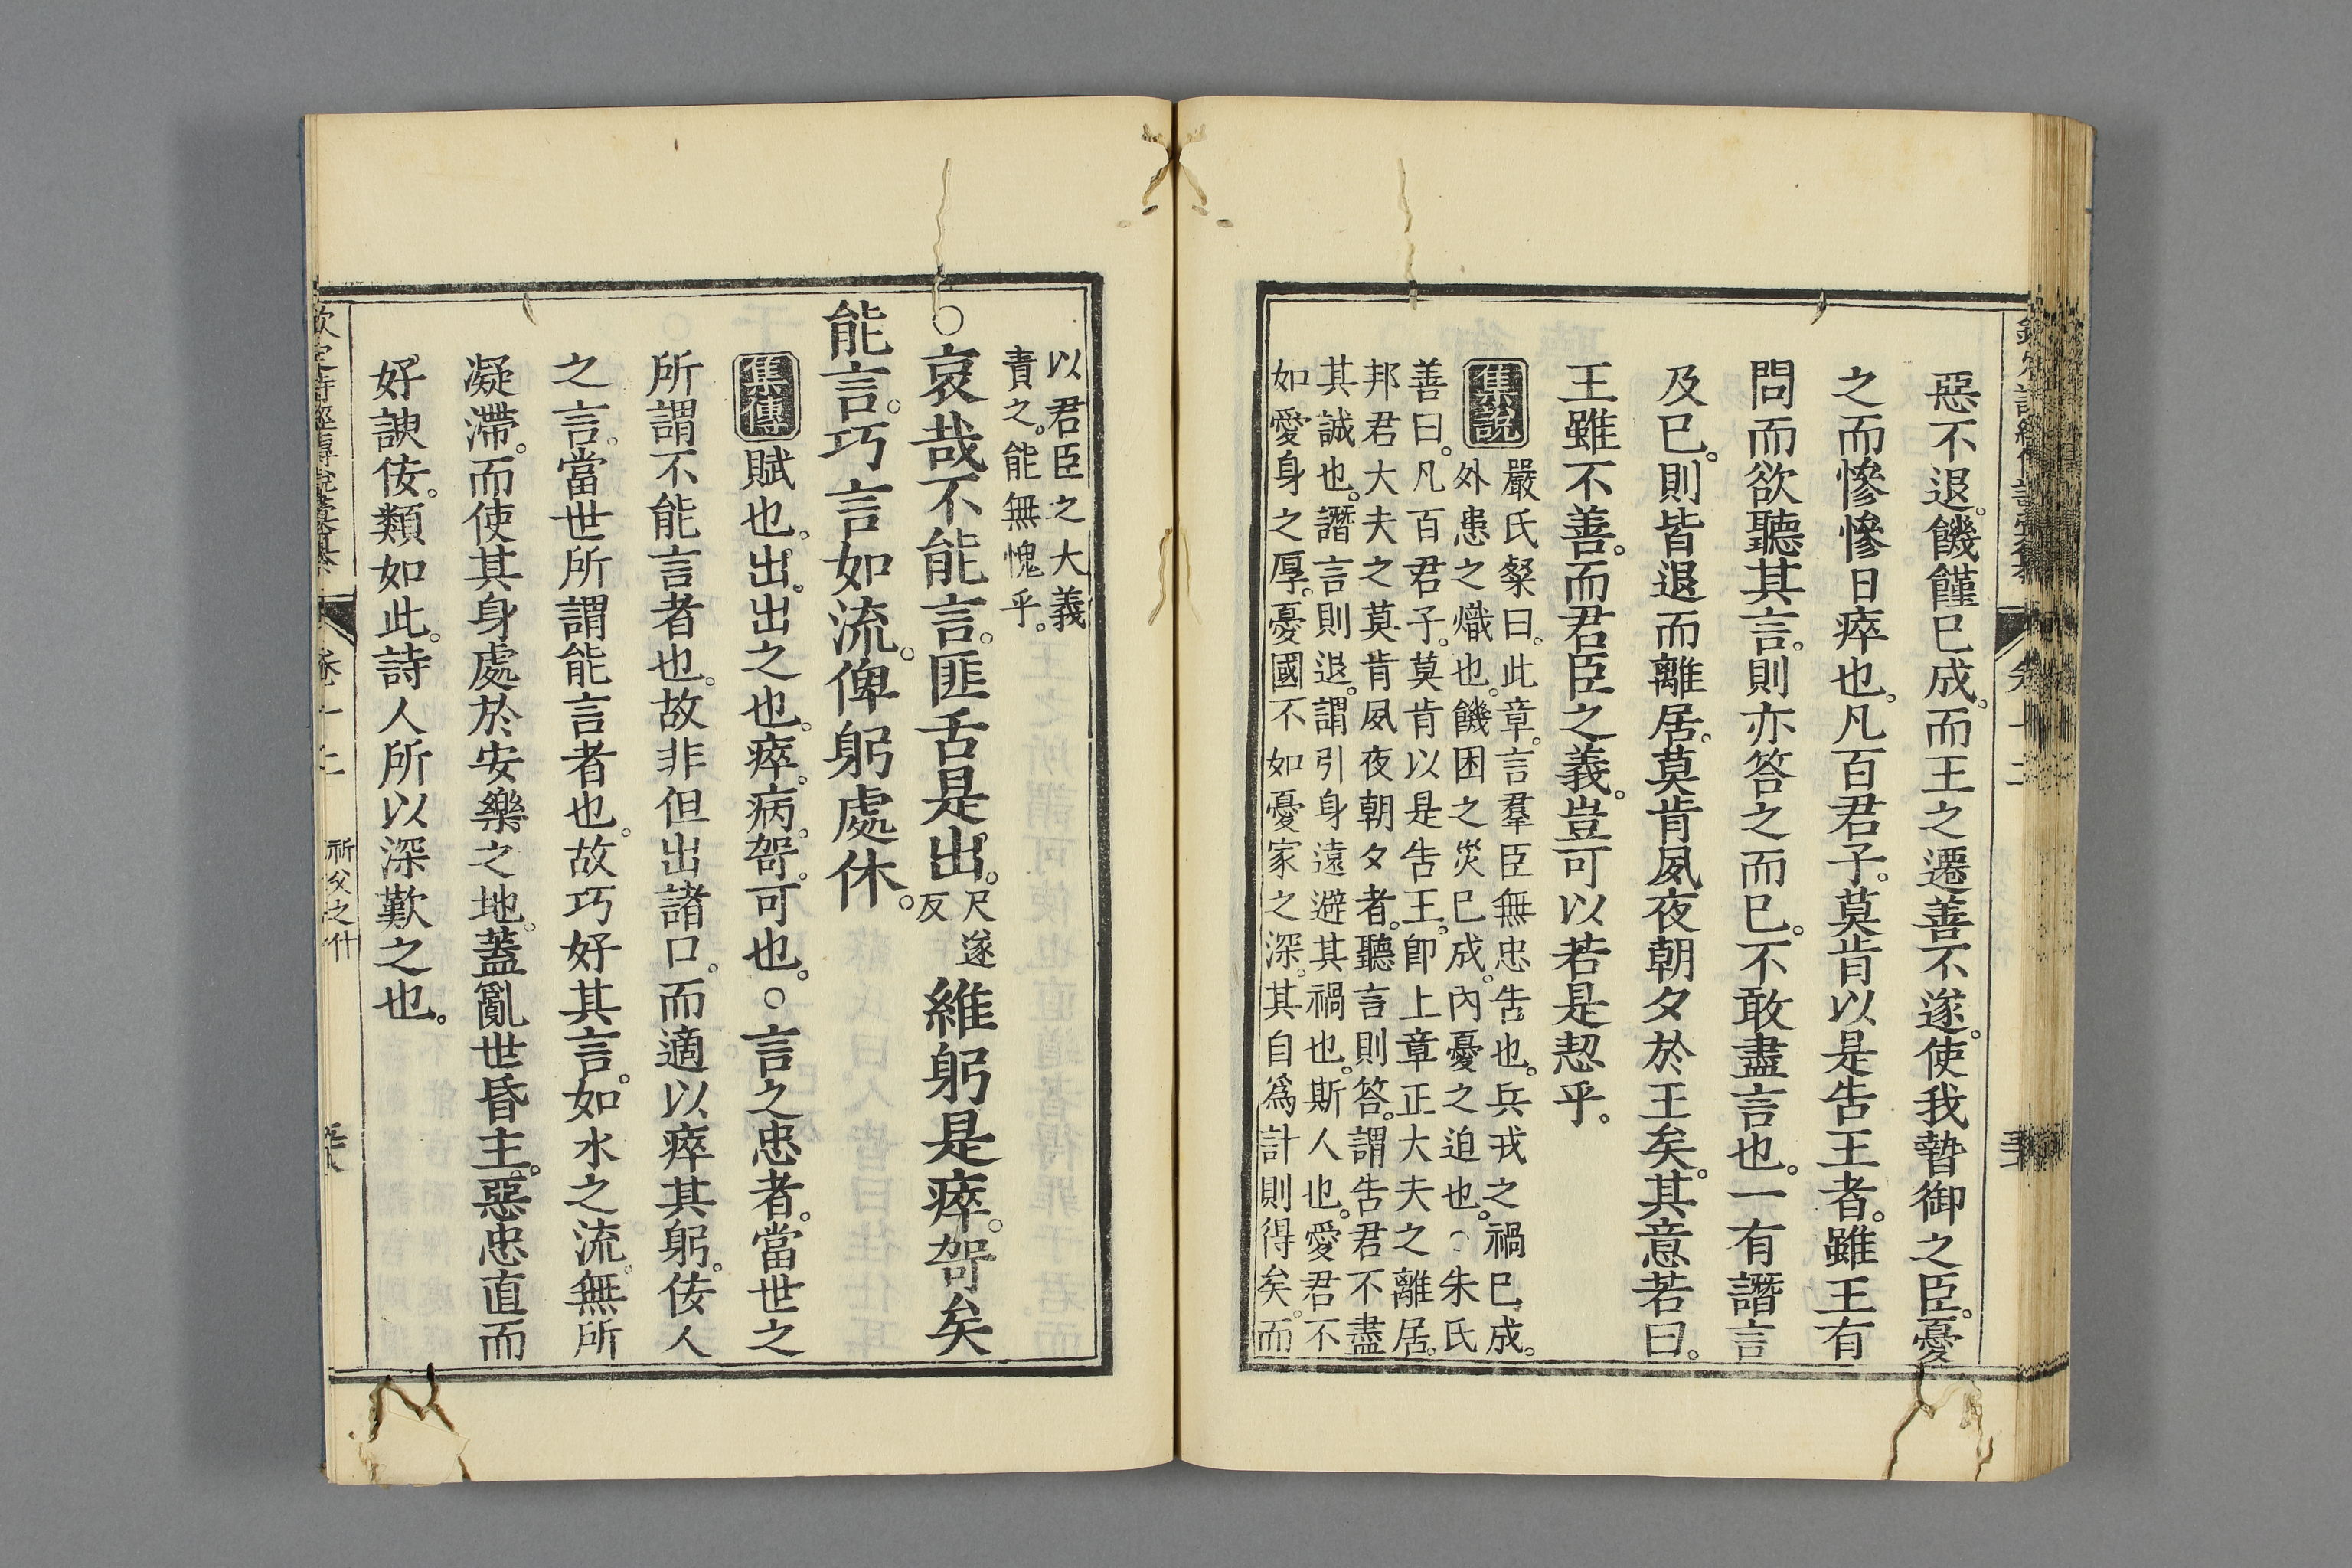 惡不退。饑饉已成。而王之遷善不遂。使我暬御之臣。憂
之而慘慘日瘁也。凡百君子。莫肯以是告王者。雖王有
問而欲聽其言。則亦答之而已。不敢盡言也。一有譖言
及已。則皆退而離居。莫肯夙夜朝夕於王矣。其意若曰。
王雖不善。而君臣之義。豈可以若是恝乎。
集說
嚴氏粲曰。此章。言羣臣無忠告也。兵戎之禍已成。
外患之熾也。饑困之災已成。內憂之迫也。○朱氏
善曰。凡百君子。莫肯以是告王。卽上章正大夫之離居。
邦君大夫之莫肯夙夜朝夕者。聽言則答。謂告君不盡
其誠也。譖言則退。謂引身遠避其禍也。斯人也。愛君不
如愛身之厚。憂國不如憂家之深。其自爲計則得矣。而
以君臣之大義
責之。能無愧乎。
○哀哉不能言。匪舌是出。尺遂反維躬是瘁。哿矣
能言。巧言如流。俾躬處休。
集傳賦也。出。出之也。瘁。病。哿。可也。○言之忠者。當世之
所謂不能言者也。故非但出諸口。而適以瘁其躬。佞人
之言。當世所謂能言者也。故巧好其言。如水之流。無所
凝滯。而使其身處於安樂之地。蓋亂世昏主。惡忠直而
好諛佞。類如此。詩人所以深歎之也。
卷十二 祈父之什